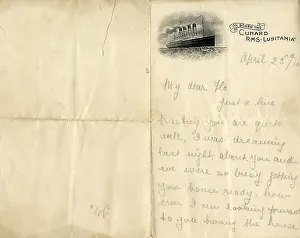 ON BOARD THE
CUNARD
R·M·S·"LUSITANIA"
April 23rd/10
My dear Flo
Just a line
trusting you are quite
well, I was dreaming
last night about you and
we were so busy getting
your house ready, how
ever I am looking forward
to you having the house